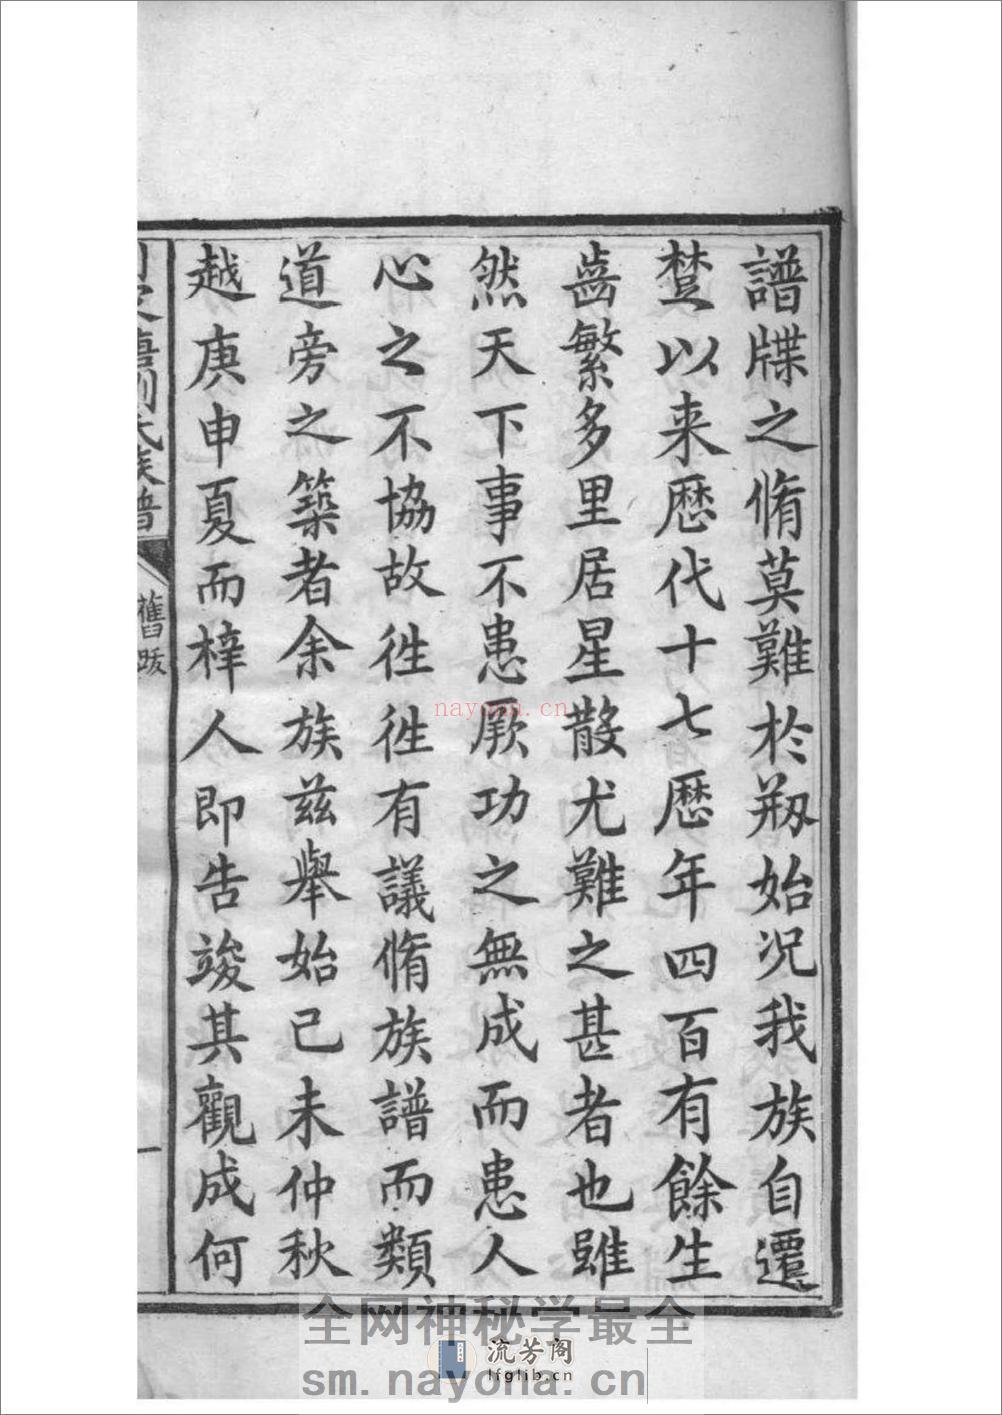 譜牒之脩莫難於剏始況我族自遷
楚以来歴代十七歴年四百有餘生
齒繁多里居星散尤難之甚者也雖
然天下事不患厥功之無成而患人
心之不協故徃徃有議脩族譜而類
道旁之築者余族茲舉始己未仲秋
越庚申夏而梓人即告竣其觀成何
氏族譜
舊跋
一
nayona.cn
全网神秘学最全
流芳阁
lfglib.cn
sm.nayona.cn